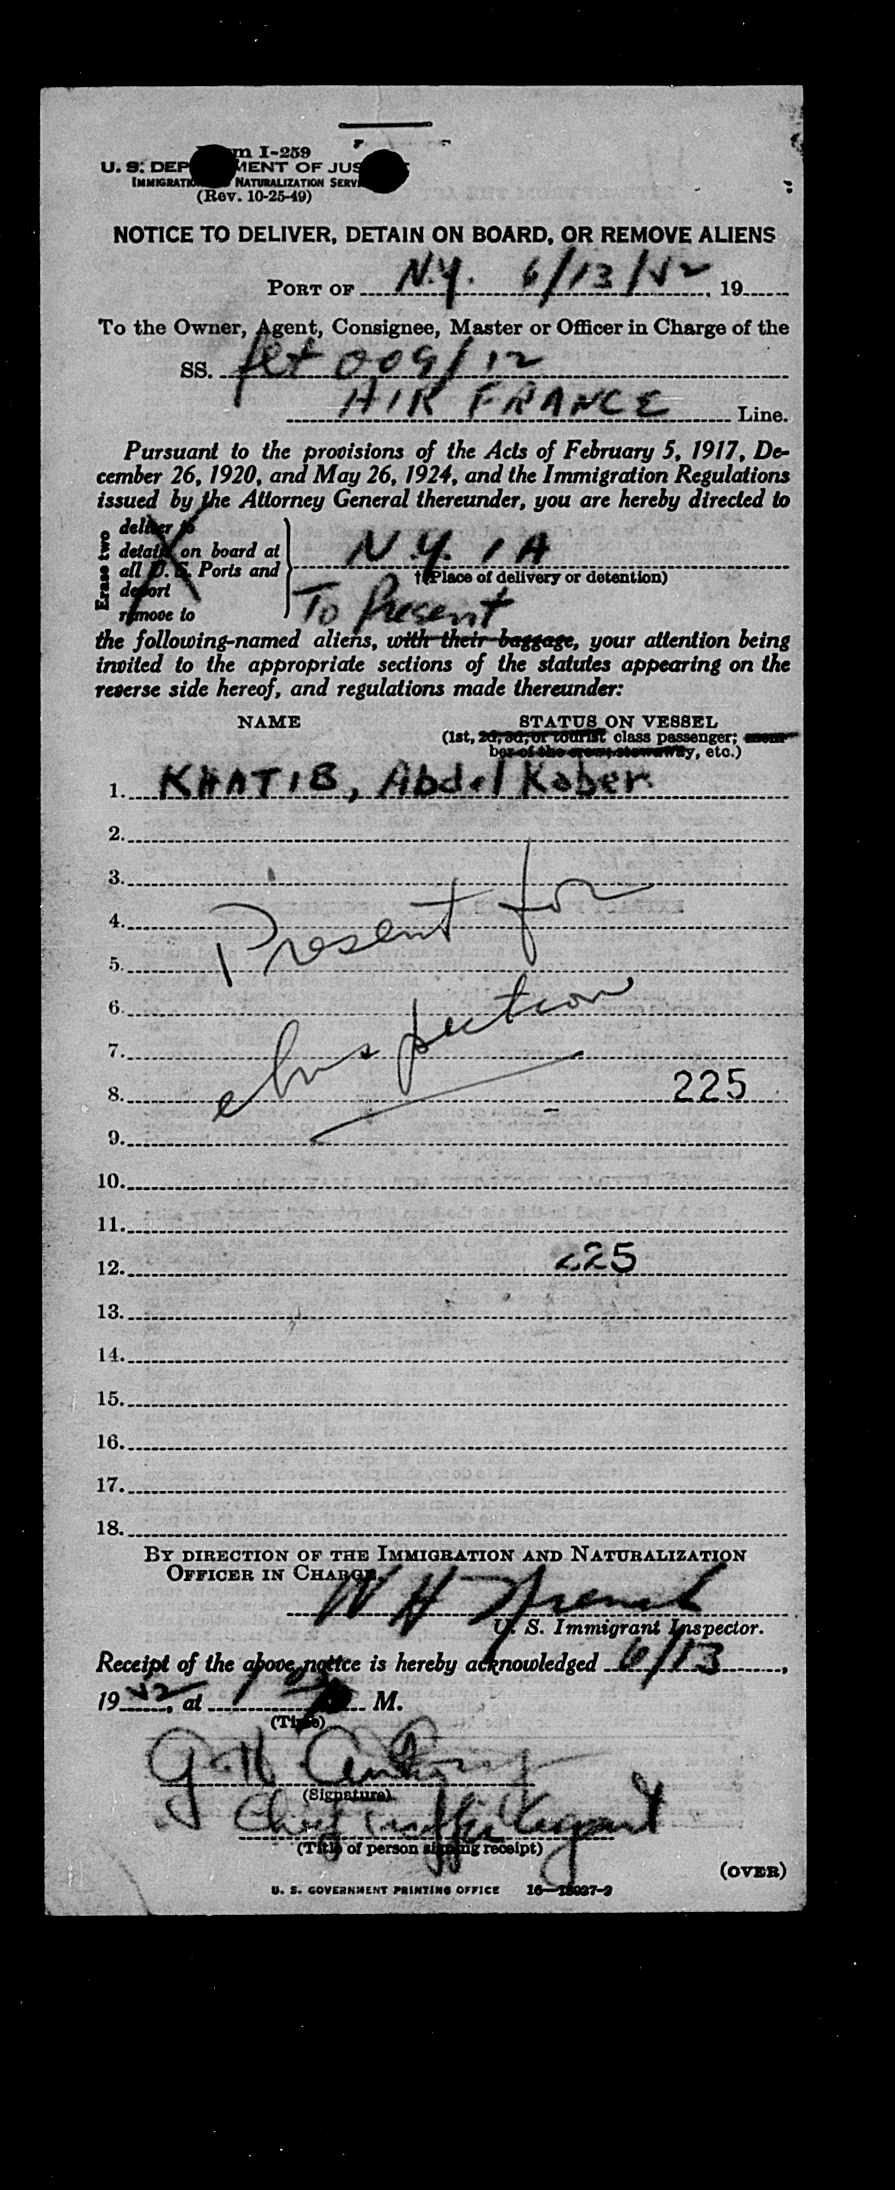 Form I-259
U. S. DEPARTMENT OF JUSTICE
IMMIGRATION AND NATURALIZATION SERVICE
(Rev. 10-25-49)
NOTICE TO DELIVER, DETAIN ON BOARD, OR REMOVE ALIENS
PORT OF N.Y. 6/13/52, 19
To the Owner, Agent, Consignee, Master or Officer in Charge of the
SS. flt 009/12
AIR FRANCE Line.
Pursuant to the provisions of the Acts of February 5, 1917, De-
cember 26, 1920, and May 26, 1924, and the Immigration Regulations
issued by the Attorney General thereunder, you are hereby directed to
Erase two
deliver to
detain on board at
all U. S. Ports and
deport
remove to
N.Y. IA
†(Place of delivery or detention)
To Present
the following-named aliens, with their baggage, your attention being
invited to the appropriate sections of the statutes appearing on the
reverse side hereof, and regulations made thereunder:
NAME STATUS ON VESSEL
(1st, 2d, 3d, or tourist class passenger; mem-
ber of the crew, stowaway, etc.)
1. KHATIB, Abdel Kaber
2.
3.
4. Present for
5.
6.
7. Inspection
8. 225
9.
10.
11.
12. 225
13.
14.
15.
16.
17.
18.
BY DIRECTION OF THE IMMIGRATION AND NATURALIZATION
OFFICER IN CHARGE,
W H French
U. S. Immigrant Inspector.
Receipt of the above notice is hereby acknowledged 6/13,
1952, at M.
(Time)
G. H.
(Signature)
Chief Traffic Agent
(Title of person signing receipt)
(OVER)
U. S. GOVERNMENT PRINTING OFFICE 16—18037-2